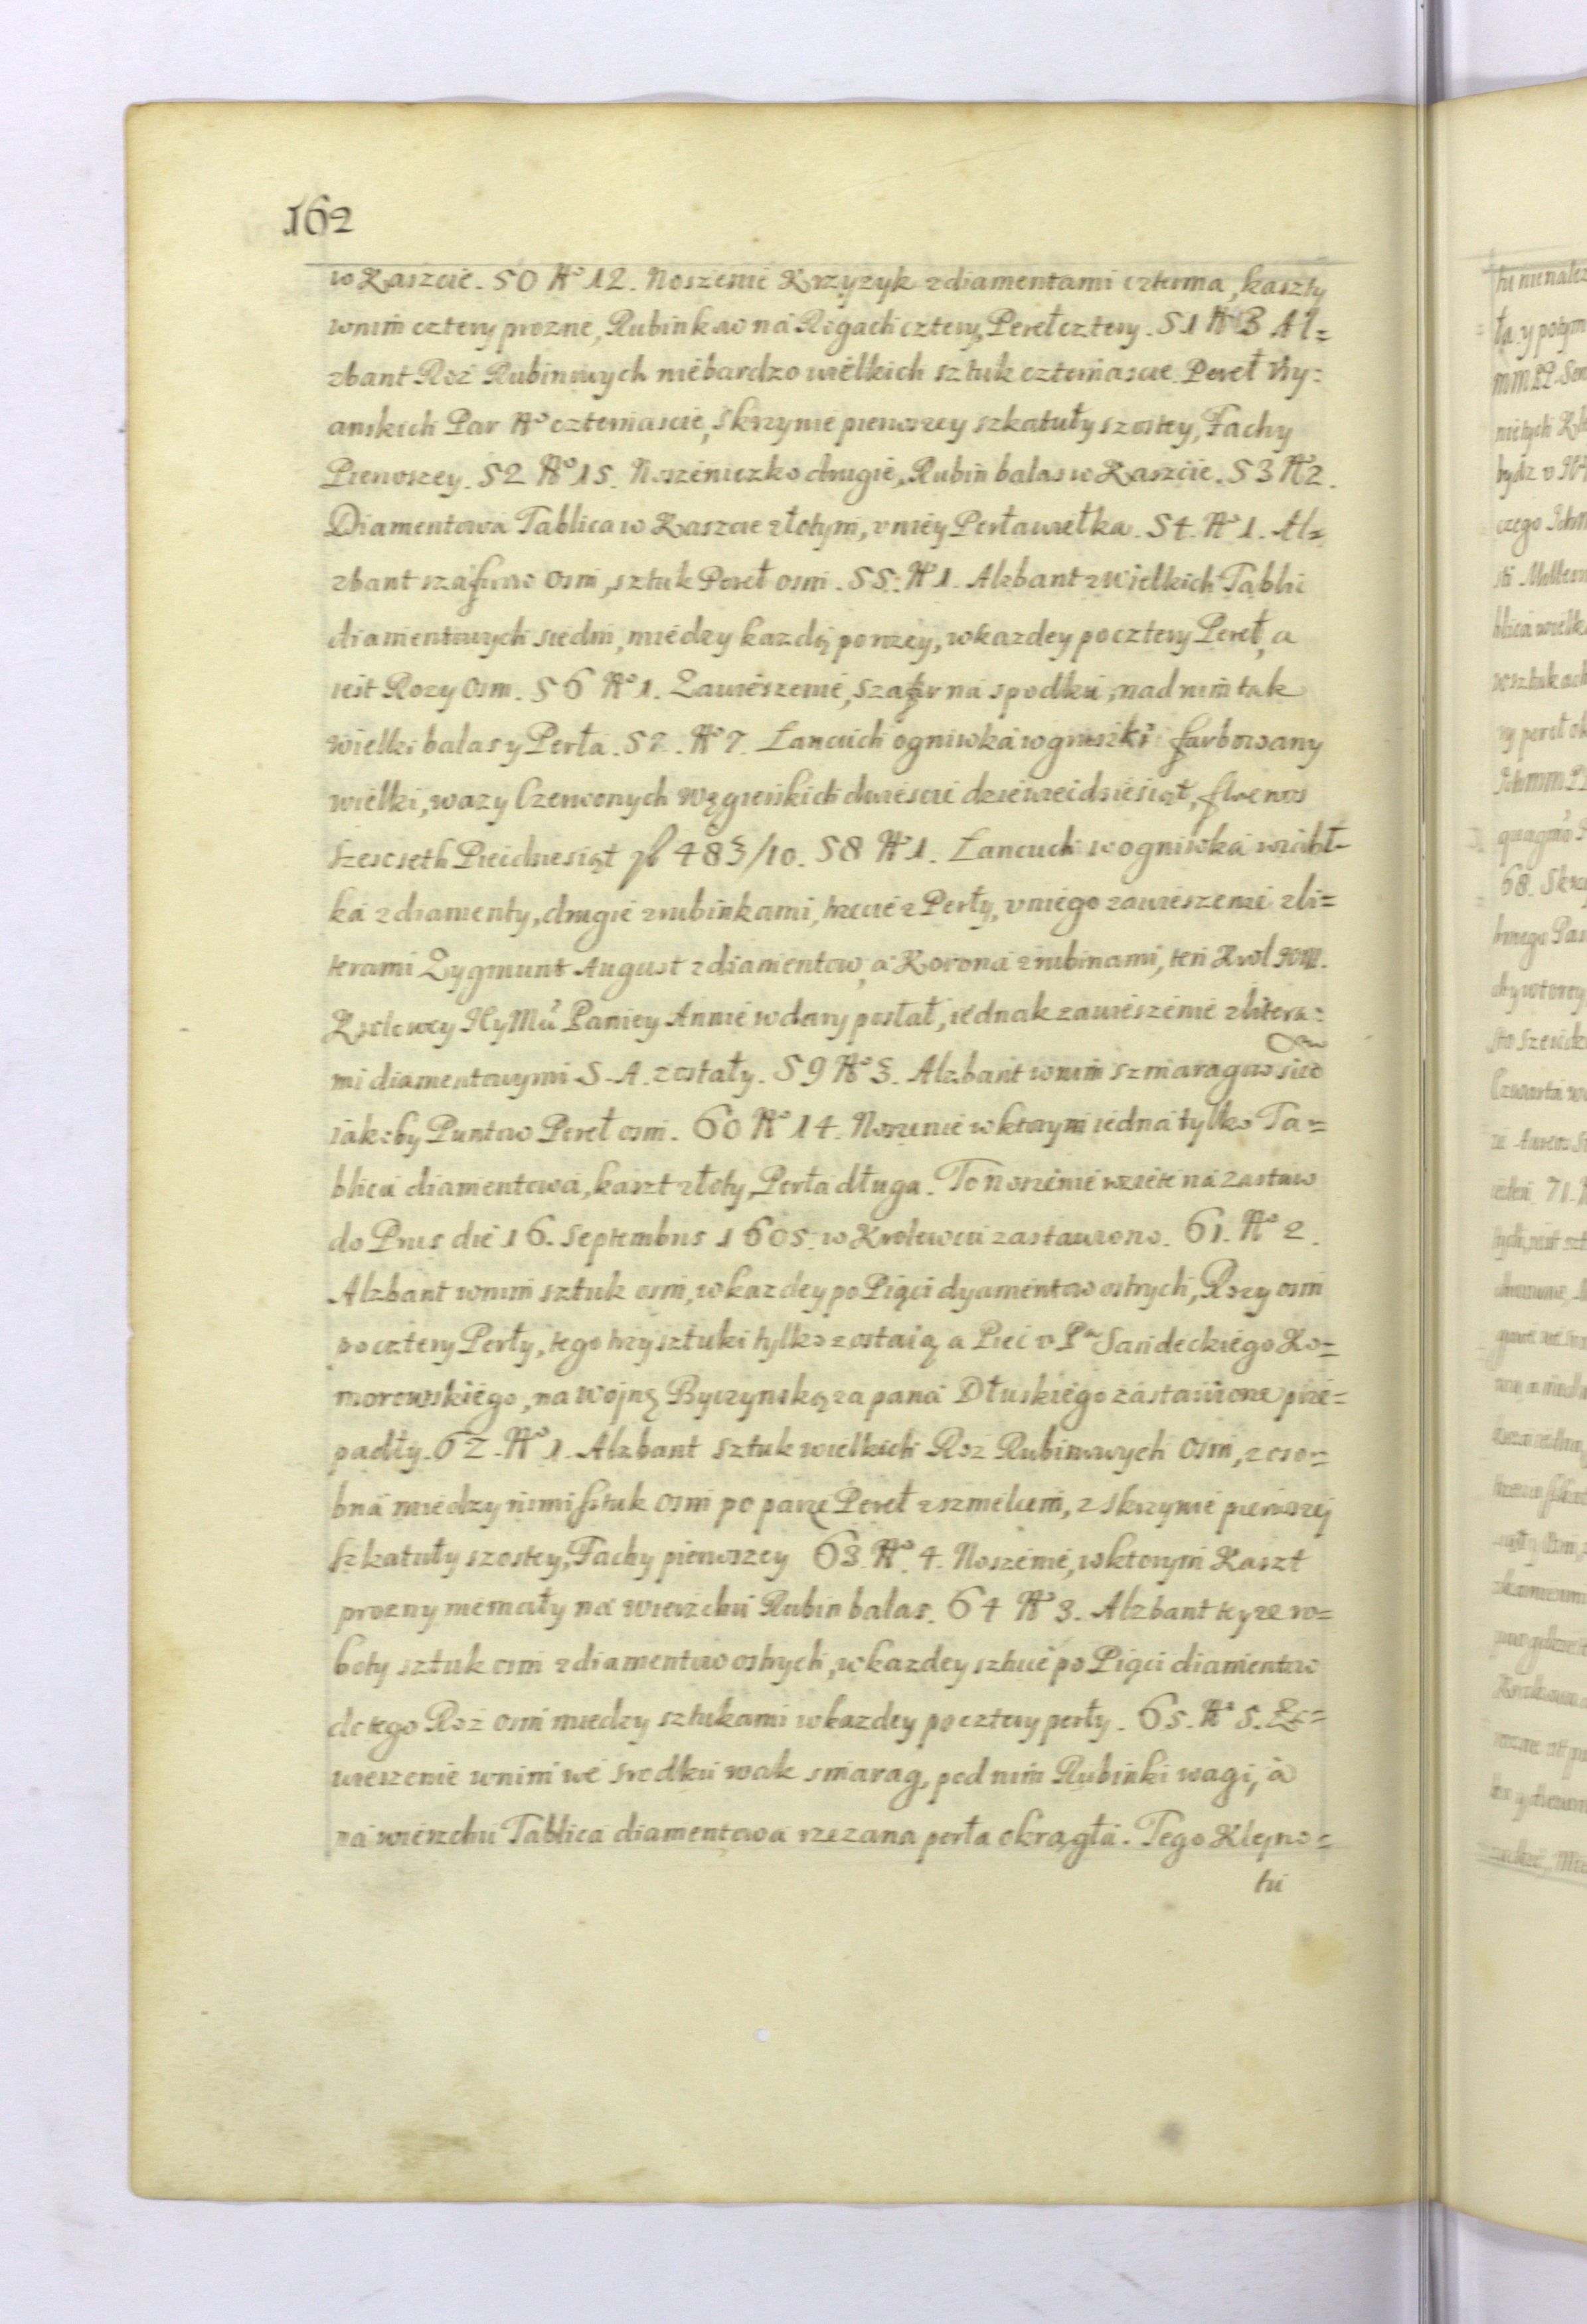 162
w Kaszcie. 50 No 12. Noszenie Krzyzyk z diamentami czterma, kaszty
w nim cztery prozne, Rubinkow na Rogach cztery, Pereł cztery. 51 No 13 Al=
zbant Roż Rubinowych niebardzo wielkich sztuk czternascie. Pereł Ury=
anskich Par No czternascie, skrzynie pierwszey szkatuły szostey, Fachy
Pierwszey. 52 No 15. Noszeniczko drugie, Rubin balas w Kaszcie. 53 No 2.
Diamentowa Tablica w Kaszcie złotym, v niey Perła wielka. 54. No 1. Al=
zbant szafirow osm, sztuk Pereł osm. 55. No 1. Alzbant z wielkich Tablic
diamentowych siedm, miedzy kazdą po rozey, w kazdey po cztery Pereł, a
iest Rozy osm. 56 No 1. Zawieszenie, szafir na spodku, nad nim tak
wielki balas y Perła. 57. No 7. Lancuch ogniwka w gruszki farbowany
wielki, wazy Czerwonych Węgierskich dwiescie dziewiecdziesiąt, florenos
szescseth Piecdziesiąt fl 483/10. 58 No 1. Lancuch w ogniwka w iabł=
ka z diamenty, drugie z rubinkami, trzecie z Perły, v niego zawieszenie z li=
terami Zygmunt August z diamentow, a Korona z rubinami, ten Krol
Krolowey Jey Mci Paniey Annie w dary posłał, iednak zawieszenie z litera=
mi diamentowymi S. A. zostały. 59 No 3. Alzbant w nim szmaragow sied
iakoby Puntow Pereł osm. 60 No 14. Noszenie w ktorym iedna tylko Ta=
blica diamentowa, kaszt złoty, Perła długa. To noszenie wziete na zastaw
do Prus die 16. Septembris 1605. w Krolewcu zastawiono. 61. No 2.
Alzbant w nim sztuk osm, w kazdey po Pięci dyamentow ostrych, Rozy osm
po cztery Perły, tego trzy sztuki tylko zostaią a Piec v Pa Sandeckiego Ko=
morowskiego, na wojnę Byczynską za pana Dłuskiego zastawione prze=
padły. 62. No 1. Alzbant sztuk wielkich Roż Rubinowych osm, z oso=
bna miedzy nimi sztuk osm po parze Pereł z szmelcem, z skrzynie pierwszej
szkatuły szostey, Fachy pierwszey 63. No. 4. Noszenie, w ktorym Kaszt
prozny niemały na wierzchu Rubin balas. 64 No 3. Alzbant teyze ro=
boty sztuk osm z diamentow ostrych, w kazdey sztuce po Pięci diamentow
do tego Roż osm miedzy sztukami w kazdey po cztery perły. 65. No 5. Za=
wieszenie w nim we srodku wak smarag, pod nim Rubinki wagi, a
na wierzchu Tablica diamentowa rzezana perła okrągła. Tego Klejno=
tu